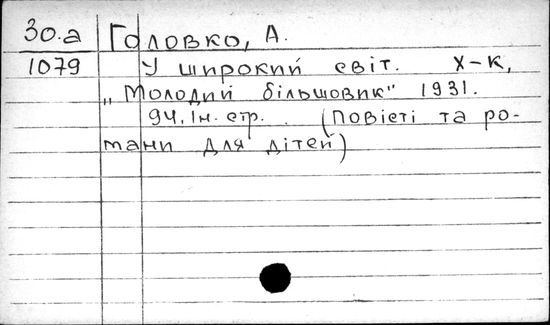 30.а Головко, А.
1079 У широкий світ. Х-К,
„Молодий більшовик" 1931.
94, Iн. стр. (Повісті та ро-
мани для дітей)